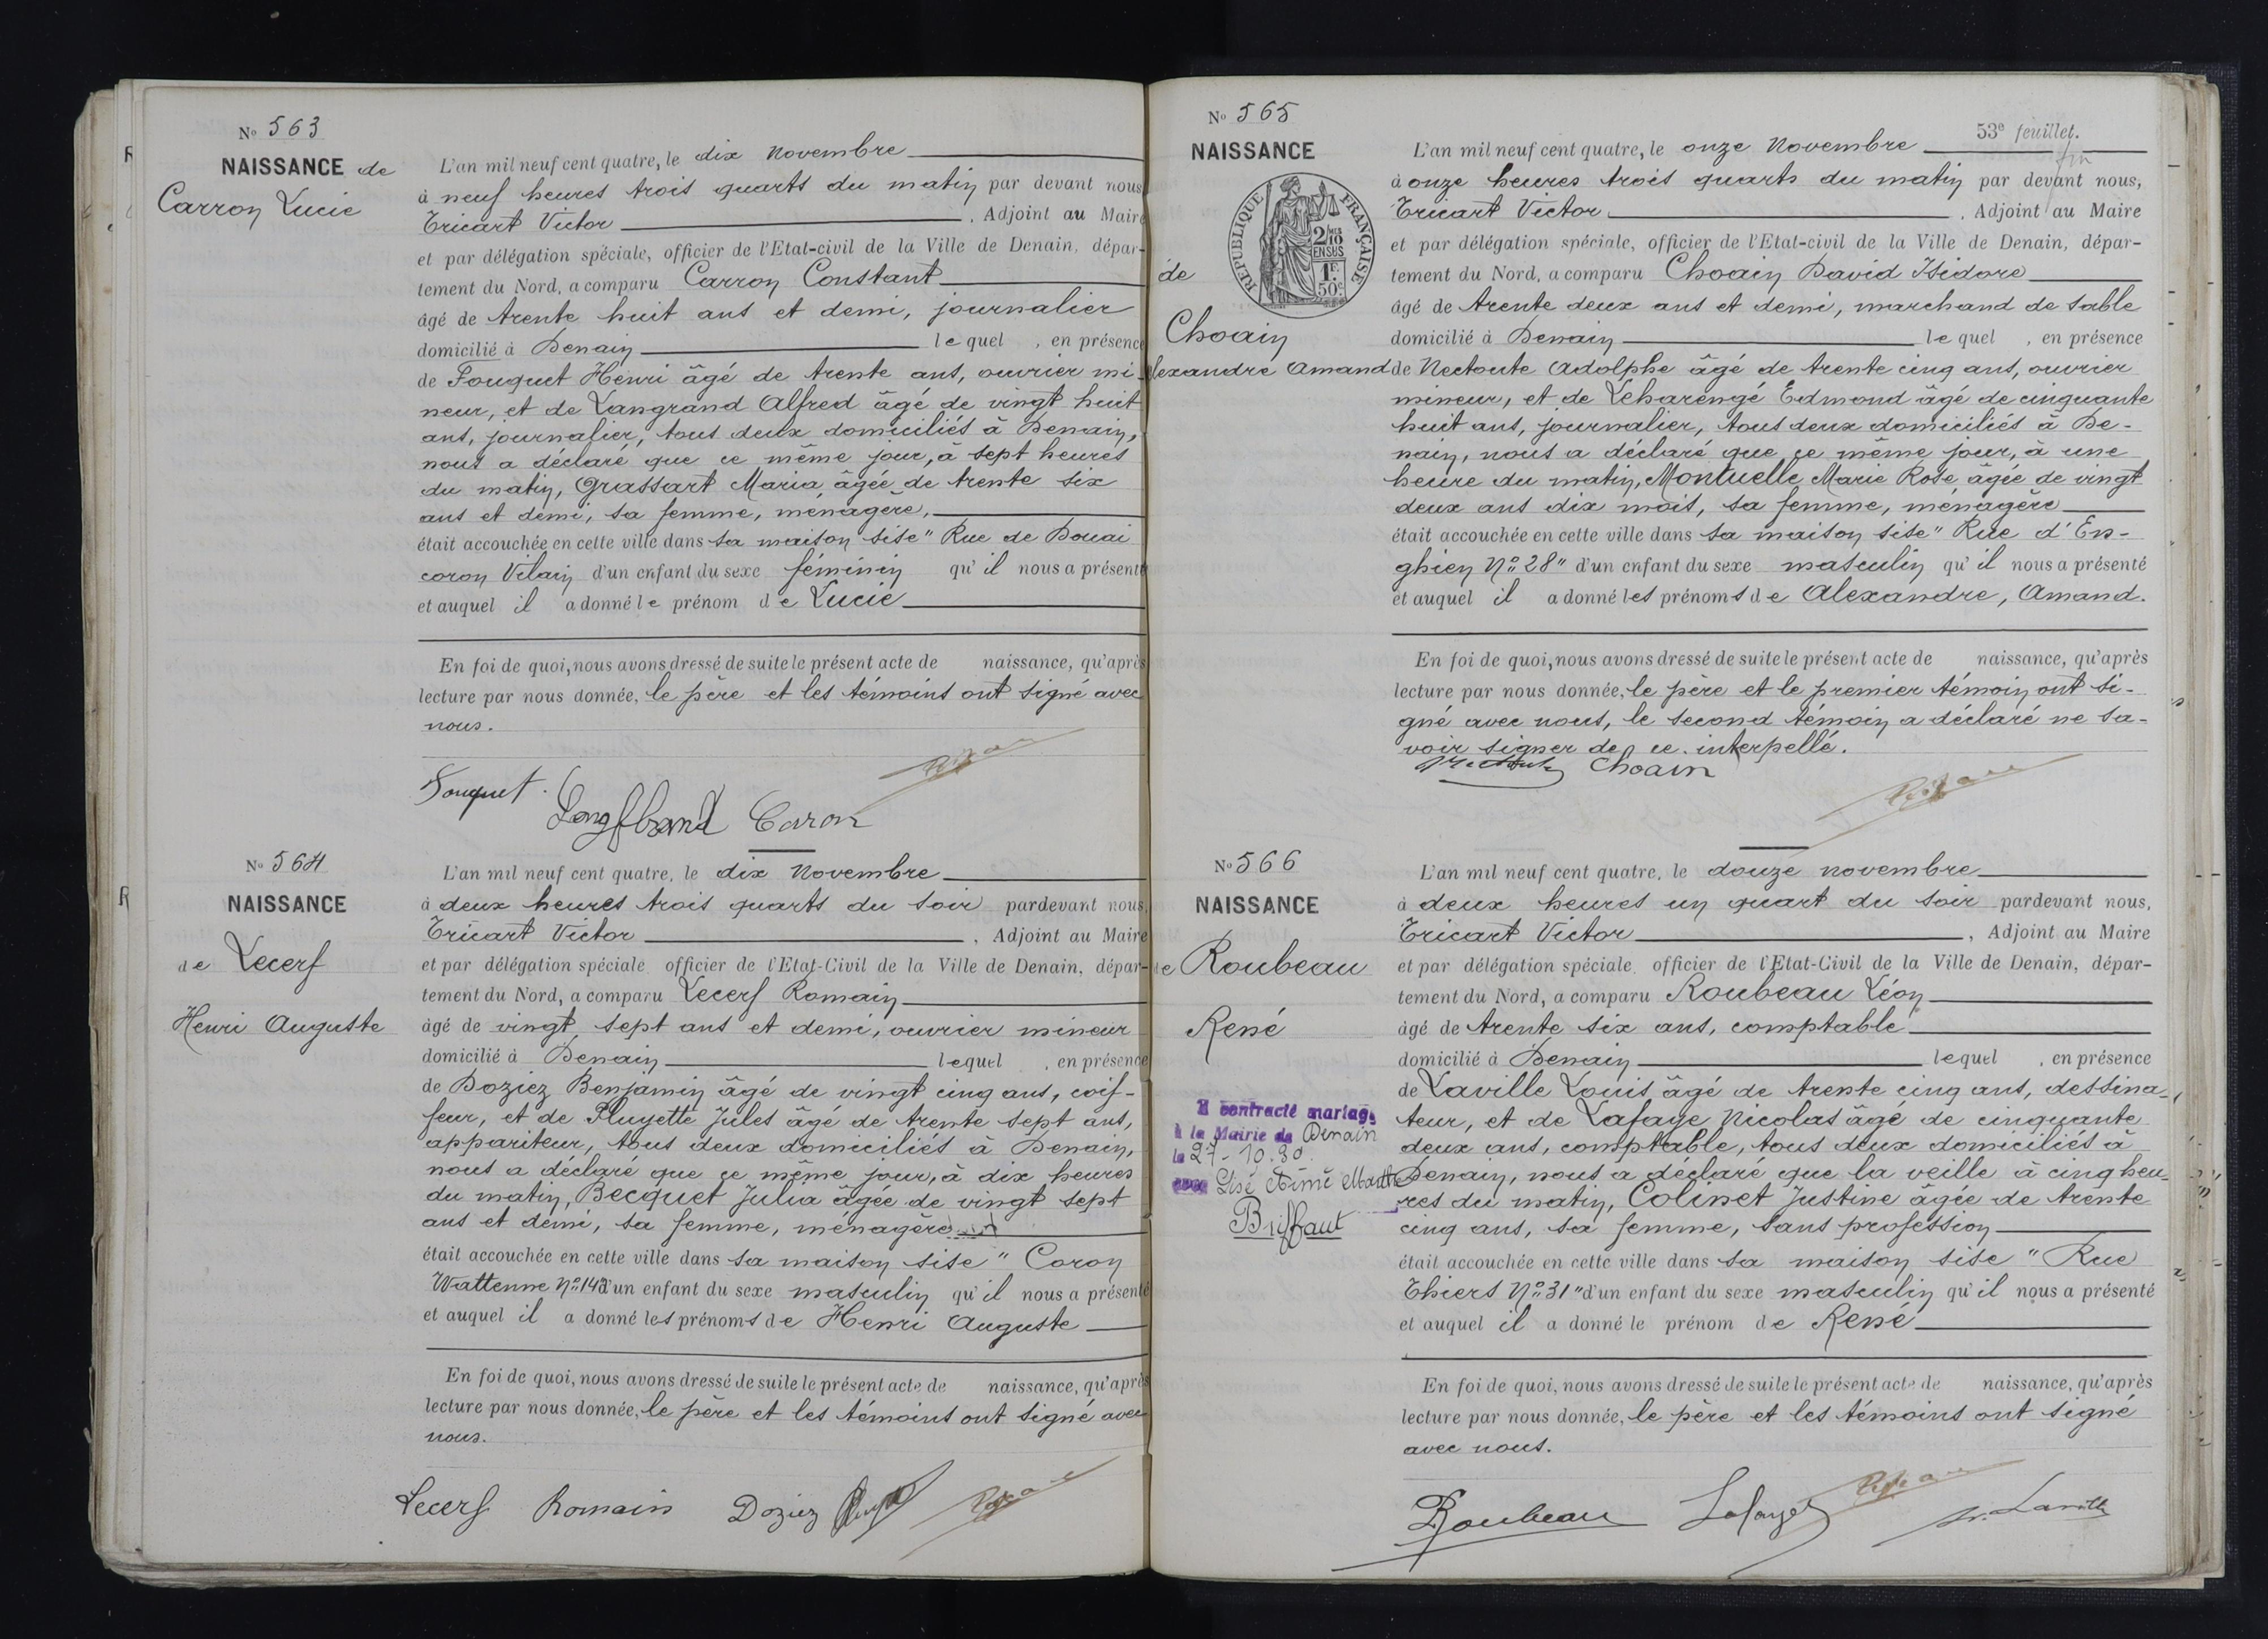 No 563
NAISSANCE de
Carron Lucie
L'an mil neuf cent quatre, le dix Novembre
à neuf heures trois quarts du matin par devant nous
Tricart Victor , Adjoint au Maire
et par délégation spéciale, officier de l'Etat-civil de la Ville de Denain, dépar-
tement du Nord, a comparu Carron Constant
âgé de trente huit ans et demi, journalier
domicilié à Denain lequel , en présence
de Fouquet Henri âgé de trente ans, ouvrier mi-
neur, et de Langrand Alfred âgé de vingt huit
ans, journalier, tous deux domiciliés à Denain,
nous a déclaré que ce même jour, à sept heures
du matin, Grassart Maria, âgée de trente six
ans et demi, sa femme, ménagère,
était accouchée en cette ville dans sa maison sise " Rue de Douai
coron Vilain d'un enfant du sexe féminin qu'il nous a présenté
et auquel il a donné le prénom de Lucie
En foi de quoi, nous avons dressé de suite le présent acte de naissance, qu'après
lecture par nous donnée, le père et les témoins ont signé avec
nous.
Fouquet.
Langrand Caron
No 564
NAISSANCE
de Lecerf
Henri Auguste
L'an mil neuf cent quatre, le dix Novembre
à deux heures trois quarts du soir pardevant nous,
Tricart Victor , Adjoint au Maire
et par délégation spéciale officier de l'Etat-Civil de la Ville de Denain, dépar-
tement du Nord, a comparu Lecerf Romain
âgé de vingt sept ans et demi, ouvrier mineur
domicilié à Denain lequel , en présence
de Doziez Benjamin âgé de vingt cinq ans, coif-
feur, et de Pluyette Jules âgé de trente sept ans,
appariteur, tous deux domiciliés à Denain,
nous a déclaré que ce même jour, à dix heures
du matin, Becquet Julia âgée de vingt sept
ans et demi, sa femme, ménagère
était accouchée en cette ville dans sa maison sise " Coron
Wattenne No 143 d'un enfant du sexe masculin qu'il nous a présenté
et auquel il a donné les prénoms de Henri Auguste
En foi de quoi, nous avons dressé de suite le présent acte de naissance, qu'après
lecture par nous donnée, le père et les témoins ont signé avec
nous.
Lecerf Romain Doziez
No 565
NAISSANCE
RÉPUBLIQUE FRANÇAISE
2/10 EN SUS
1F 50c
de
Choain
lexandre Amand
53e feuillet.
fin
L'an mil neuf cent quatre, le onze Novembre
à onze heures trois quarts du matin par devant nous,
Tricart Victor , Adjoint au Maire
et par délégation spéciale, officier de l'Etat-civil de la Ville de Denain, dépar-
tement du Nord, a comparu Choain David Isidore
âgé de trente deux ans et demi, marchand de sable
domicilié à Denain lequel , en présence
de Nectoute Adolphe âgé de trente cinq ans, ouvrier
mineur, et de Leharengé Edmond âgé de cinquante
huit ans, journalier, tous deux domiciliés à De-
nain, nous a déclaré que ce même jour, à une
heure du matin, Montuelle Marie Rose âgée de vingt
deux ans dix mois, sa femme, ménagère
était accouchée en cette ville dans sa maison sise " Rue d'En-
ghien No 28" d'un enfant du sexe masculin qu'il nous a présenté
et auquel il a donné les prénoms de Alexandre, Amand.
En foi de quoi, nous avons dressé de suite le présent acte de naissance, qu'après
lecture par nous donnée, le père et le premier témoin ont si-
gné avec nous, le second témoin a déclaré ne sa-
voir signer de ce interpellé.
Choain
No 566
NAISSANCE
de Roubeau
René
A contracté mariage
à la Mairie de Denain
le 27-10.30.
avec Lisé Aimé Marthe
Briffaut
L'an mil neuf cent quatre, le douze novembre
à deux heures un quart du soir pardevant nous,
Tricart Victor , Adjoint au Maire
et par délégation spéciale officier de l'Etat-Civil de la Ville de Denain, dépar-
tement du Nord, a comparu Roubeau Léon
âgé de trente six ans, comptable
domicilié à Denain lequel , en présence
de Laville Louis âgé de trente cinq ans, dessina-
teur, et de Lafaye Nicolas âgé de cinquante
deux ans, comptable, tous deux domiciliés à
Denain, nous a déclaré que la veille à cinq heu-
res du matin, Colinet Justine âgée de trente
cinq ans, sa femme, sans profession
était accouchée en cette ville dans sa maison sise " Rue
Thiers No 31" d'un enfant du sexe masculin qu'il nous a présenté
et auquel il a donné le prénom de René
En foi de quoi, nous avons dressé de suite le présent acte de naissance, qu'après
lecture par nous donnée, le père et les témoins ont signé
avec nous.
Roubeau Lafaye Laville